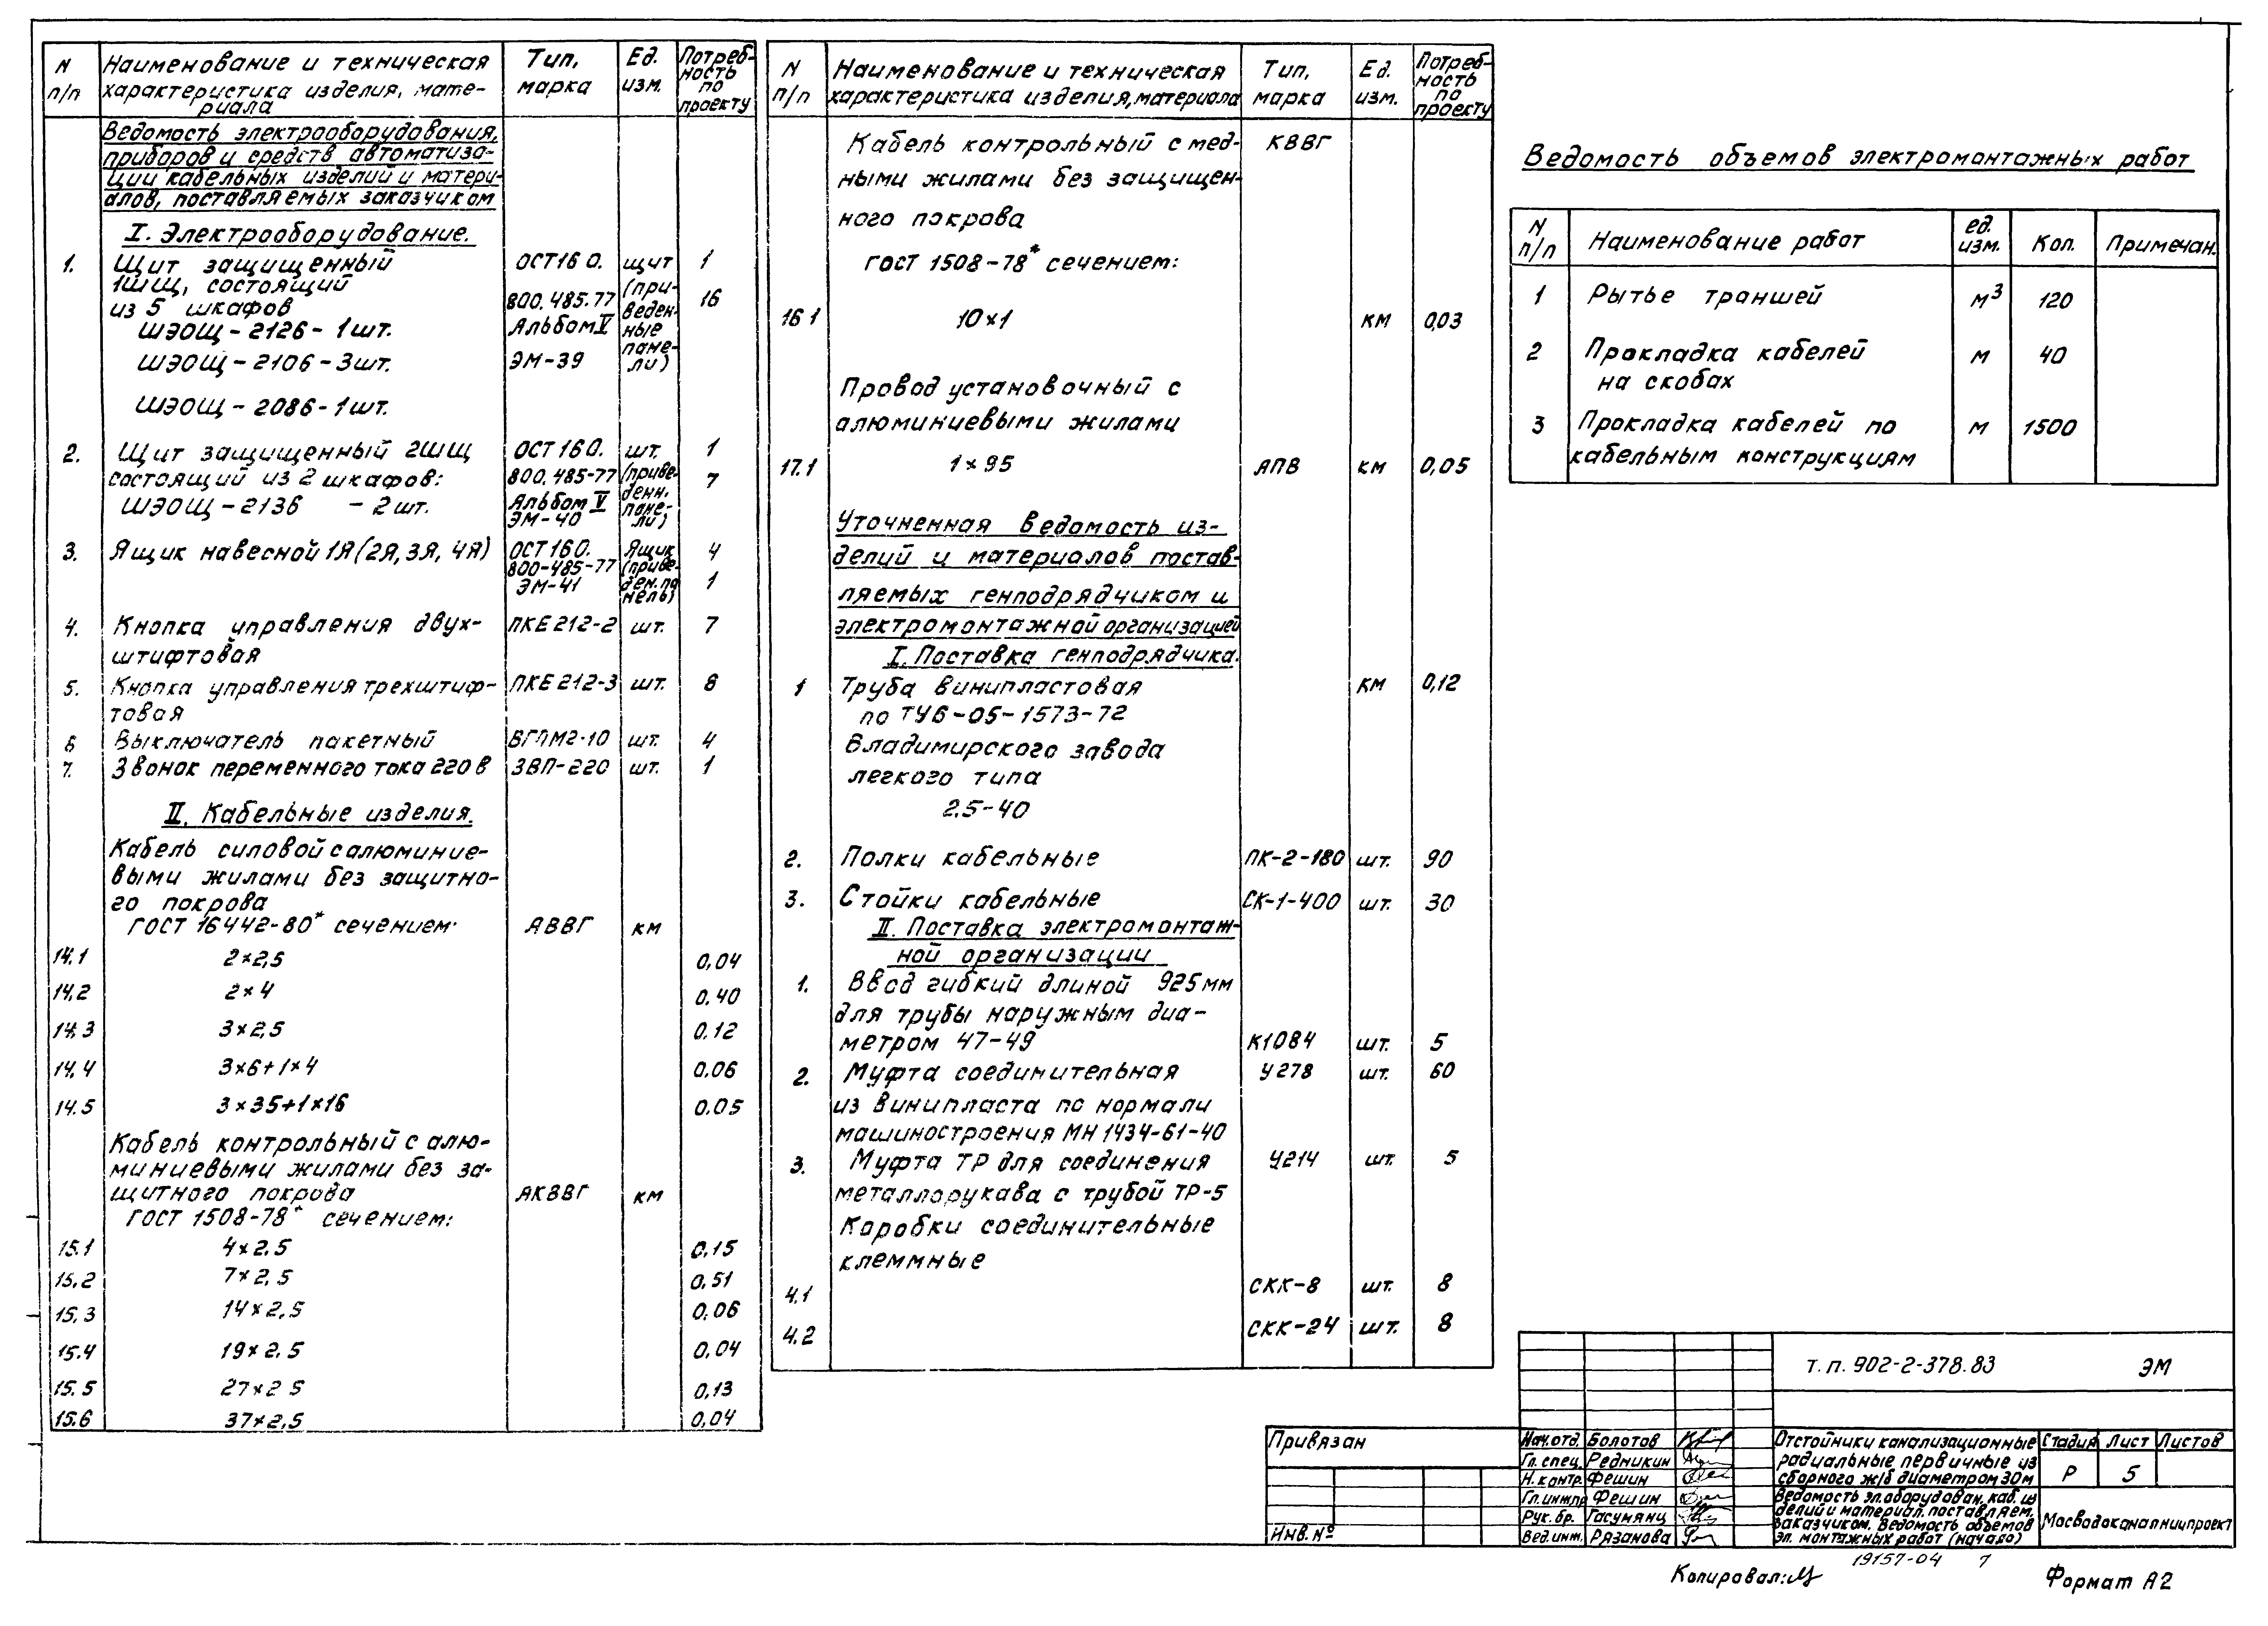 N п/п
Наименование и техническая характеристика изделия, мате-
риала
Тип, марка
Ед. изм.
Потреб-
ность
по
проекту
Ведомость электрооборудования,
приборов и средств автоматиза-
ции кабельных изделий и матери-
алов, поставляемых заказчиком
I. Электрооборудование.
1. Щит защищенный ОСТ16 0. щит 1
1ШЩ, состоящий (при-
из 5 шкафов 800.485.77 веден- 16
ШЭОЩ-2126-1шт. Альбом V ные
ШЭОЩ-2106-3шт. ЭМ-39 пане-
ли)
ШЭОЩ-2086-1шт.
2. Щит защищенный 2ШЩ ОСТ 16 0. шт. 1
состоящий из 2 шкафов: 800.485-77 (приве- 7
ШЭОЩ-2136 - 2шт. Альбом V денн.
ЭМ-40 пане-
ли)
3. Ящик навесной 1Я (2Я, 3Я, 4Я) ОСТ 16 0. Ящик 4
800-485-77 (приве-
ЭМ-41 ден. па 1
нель)
4. Кнопка управления двух- ПКЕ 212-2 шт. 7
штифтовая
5. Кнопка управления трехштиф- ПКЕ 212-3 шт. 6
товая
6 Выключатель пакетный ВГПМ2-10 шт. 4
7. Звонок переменного тока 220 в ЗВП-220 шт. 1
II. Кабельные изделия.
Кабель силовой с алюминие-
выми жилами без защитно-
го покрова
ГОСТ 16442-80* сечением. АВВГ км
14.1 2×2,5 0,04
14.2 2×4 0,40
14.3 3×2,5 0,12
14.4 3×6+1×4 0,06
14.5 3×35+1×16 0,05
Кабель контрольный с алю-
миниевыми жилами без за-
щитного покрова АКВВГ км
ГОСТ 1508-78* сечением:
15.1 4×2,5 0,15
15.2 7×2,5 0,51
15.3 14×2,5 0,06
15.4 19×2,5 0,04
15.5 27×2 5 0,13
15.6 37×2,5 0,04
N п/п
Наименование и техническая
характеристика изделия, материала
Тип, марка
Ед. изм.
Потреб-
ность
по
проекту
Кабель контрольный с мед- КВВГ
ными жилами без защищен-
ного покрова
ГОСТ 1508-78* сечением:
16 1 10×1 км 0,03
Провод установочный с
алюминиевыми жилами
17.1 1×95 АПВ км 0,05
Уточненная ведомость из-
делий и материалов постав-
ляемых генподрядчиком и
электромонтажной организацией
I. Поставка генподрядчика.
1 Труба винипластовая км 0,12
по ТУ6-05-1573-72
Владимирского завода
легкого типа
2,5-40
2. Полки кабельные ПК-2-180 шт. 90
3. Стойки кабельные СК-1-400 шт. 30
II. Поставка электромонтаж-
ной организации
1. Ввод гибкий длиной 925 мм
для трубы наружным диа-
метром 47-49 К1084 шт. 5
2. Муфта соединительная У278 шт. 60
из винипласта по нормали
машиностроения МН 1434-61-40
3. Муфта ТР для соединения У214 шт. 5
металлорукава с трубой ТР-5
Коробки соединительные
клеммные
4.1 СКК-8 шт. 8
4.2 СКК-24 шт. 8
Ведомость объемов электромонтажных работ
N п/п Наименование работ ед. изм. Кол. Примечан.
1 Рытье траншей м³ 120
2 Прокладка кабелей м 40
на скобах
3 Прокладка кабелей по м 1500
кабельным конструкциям
т.п. 902-2-378.83 ЭМ
Привязан
Инв. №
Нач.отд. Болотов
Гл. спец. Редникин
Н. контр. Фешин
Гл.инж.пр Фешин
Рук. бр. Гасумянц
Вед.инж. Рязанова
Отстойники канализационные
радиальные первичные из
сборного ж/б диаметром 30м
Стадия Лист Листов
Р 5
Ведомость эл.оборудован. каб. из
делий и материал. поставляем.
заказчиком. Ведомость объемов
эл. монтажных работ (начало)
Мосводоканалниипроект
19157-04 7
Копировал:
Формат А2